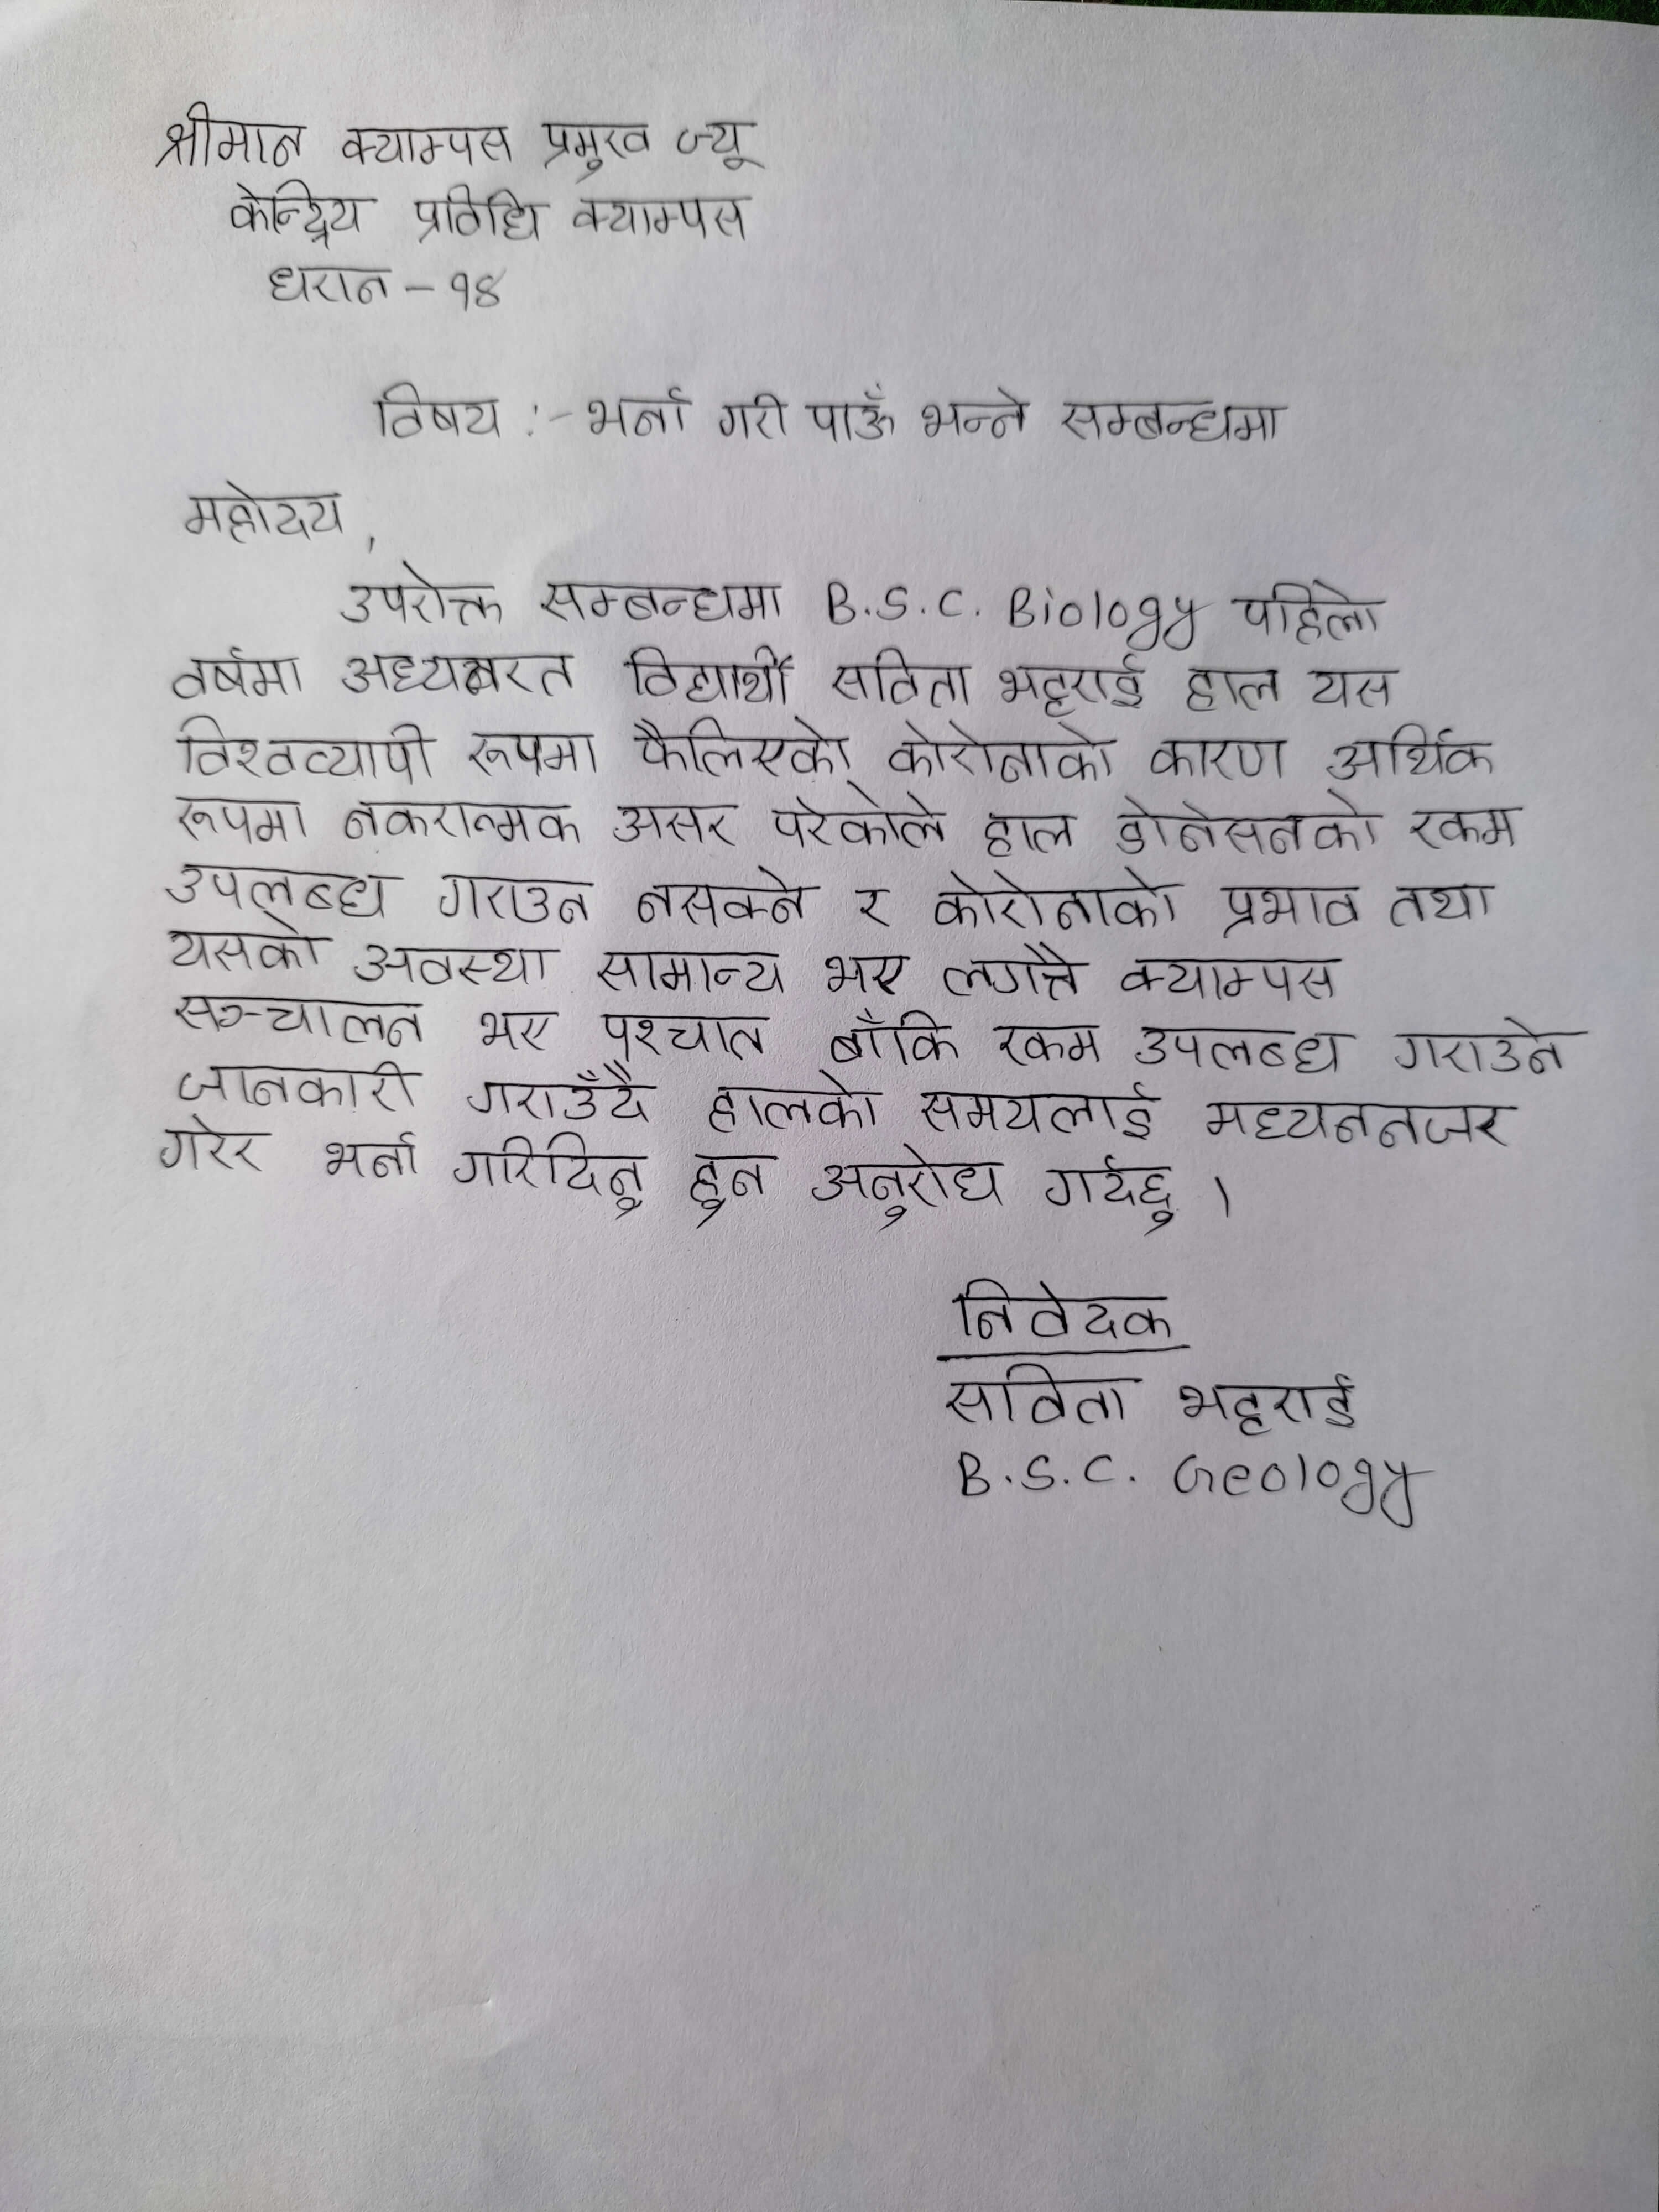 श्रीमान क्याम्पस प्रमुख ज्यू
केन्द्रिय प्रविधि क्याम्पस
धरान - १४
विषय :- भर्ना गरी पाऊँ भन्ने सम्बन्धमा
महोदय,
उपरोक्त सम्बन्धमा B.S.C. Biology पहिलो
वर्षमा अध्ययनरत विद्यार्थी सविता भट्टराई हाल यस
विश्वव्यापी रूपमा फैलिएको कोरोनाको कारण आर्थिक
रूपमा नकरात्मक असर परेकोले हाल डोनेसनको रकम
उपलब्ध गराउन नसक्ने र कोरोनाको प्रभाव तथा
यसको अवस्था सामान्य भए लगत्तै क्याम्पस
सञ्चालन भए पश्चात बाँकि रकम उपलब्ध गराउने
जानकारी गराउँदै हालको समयलाई मध्यननजर
गरेर भर्ना गरिदिनु हुन अनुरोध गर्दछु ।
निवेदक
सविता भट्टराई
B.S.C. Geology